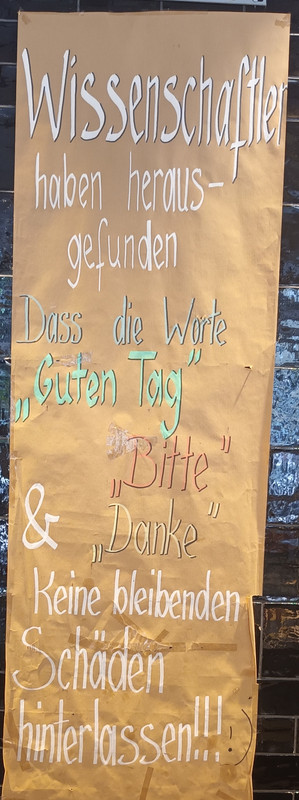 Wissenschaftler
haben heraus-
gefunden
Dass die Worte
„Guten Tag“
„Bitte“
& „Danke“
Keine bleibenden
Schäden
hinterlassen!!! :-)